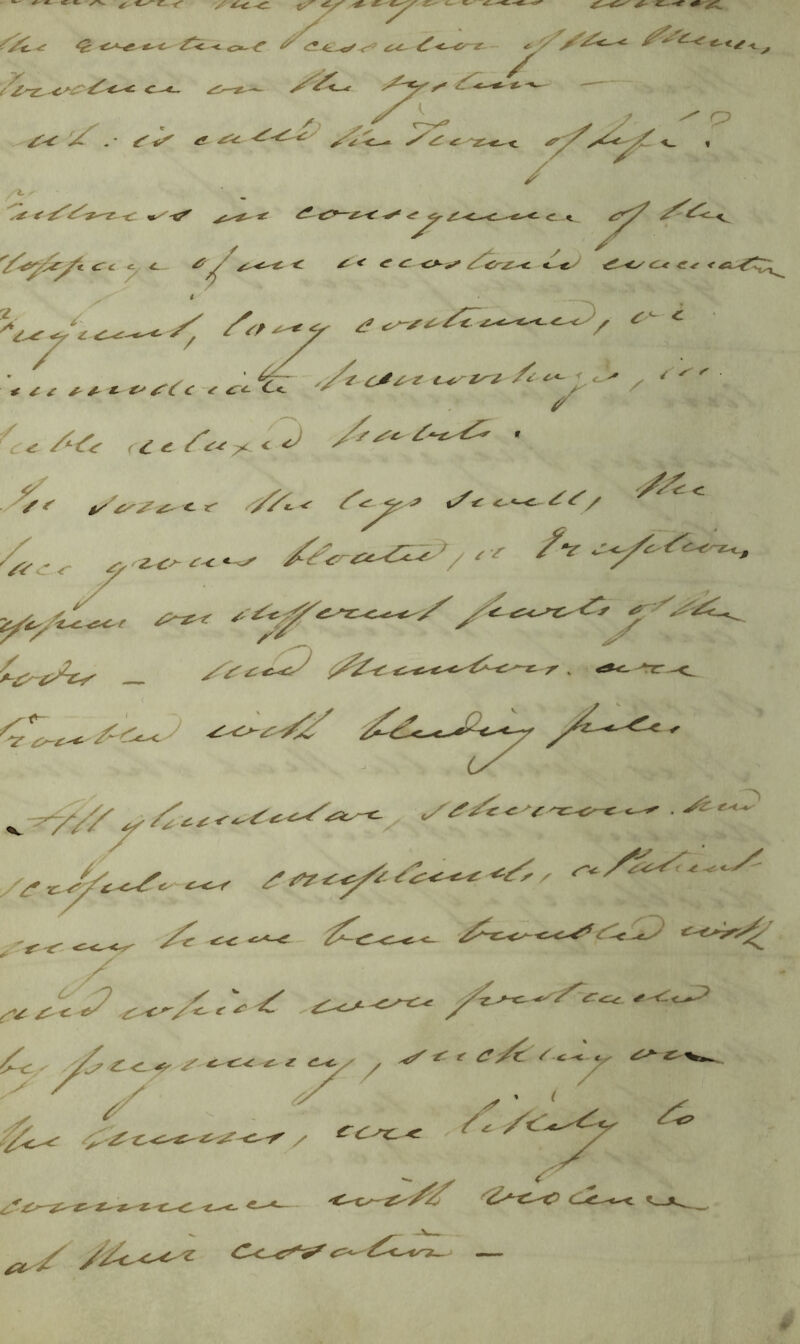 the symptoms which
the eventual cessation of the Menses,
produces on the System —
at : is called the Turn of Life?
in consequence of the
stoppage of an accustomed evacuatn
frequent, long continued, or
immoderate Hæmorrhages, in
feeble relaxed habits.
In some the legs swell, the
face grows bloated, or Eruptions,
appear on different parts of the
body — and Numbers. are
troubled with bleeding piles
All glandular, Scherrous. and
scrofulous complaints, a Patient
may have been troubled with
and which were protracted
by pregnancy, suckling or
the menses, are likely to
commence with violence
at their cessation —